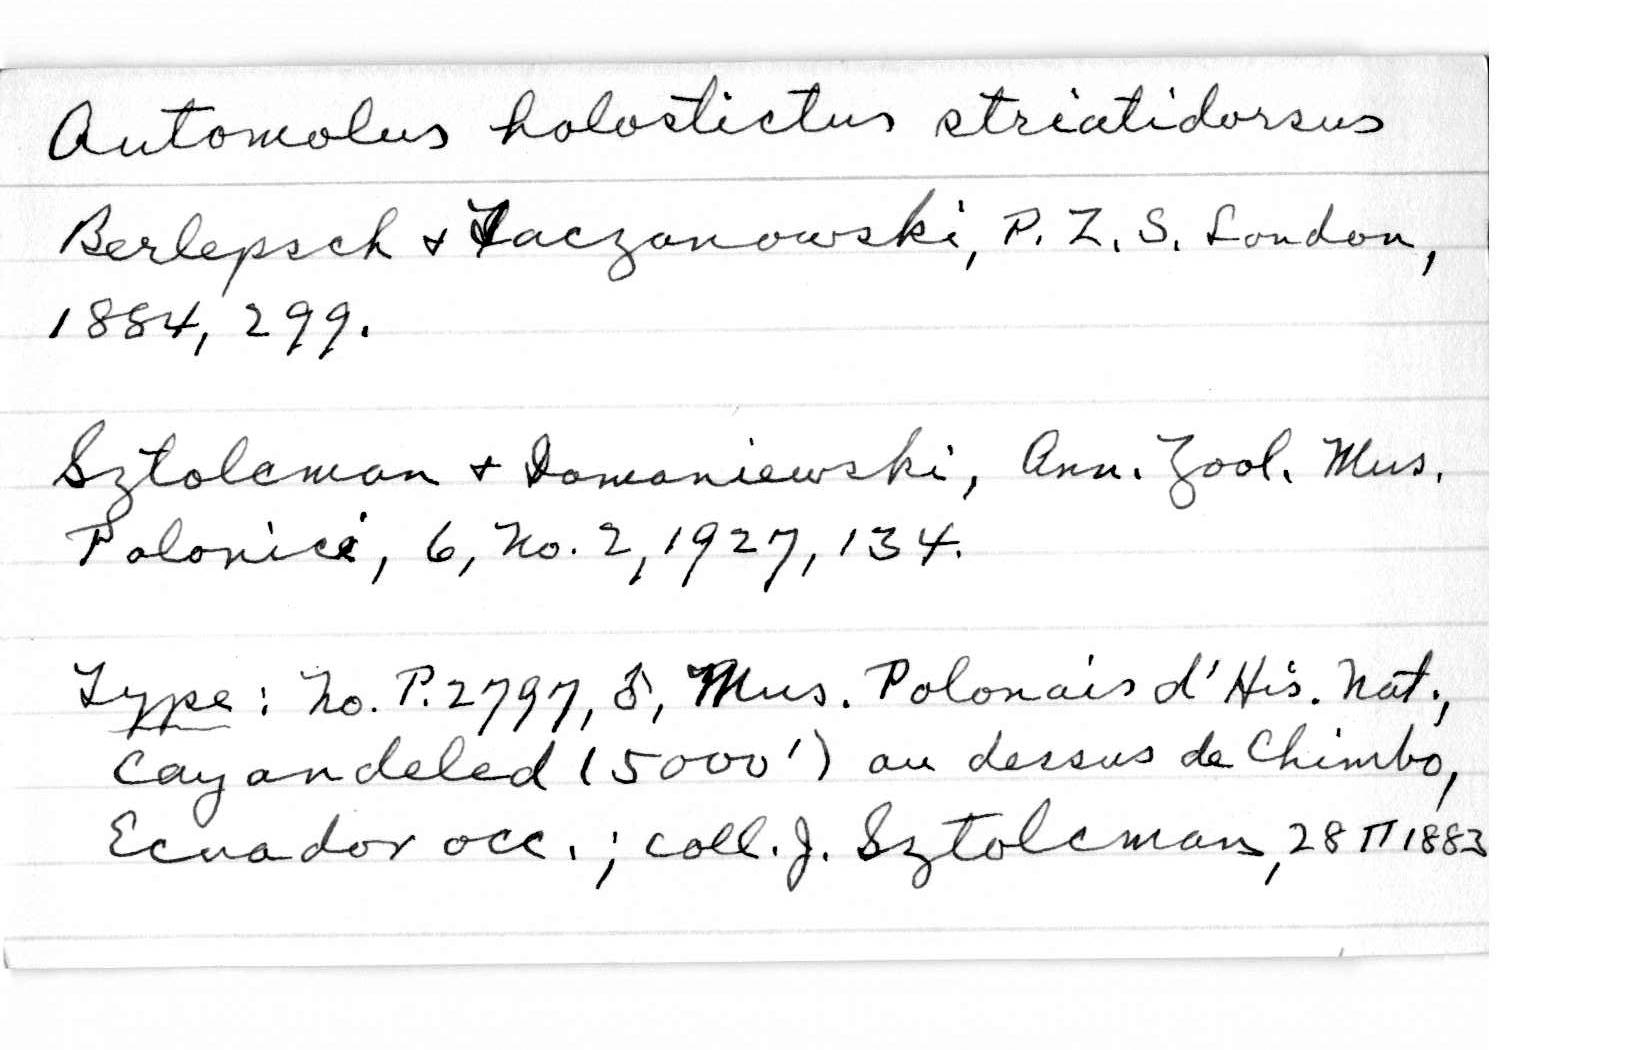 Automolus holostictus striatidorsus
Berlepsch & Taczanowski, P. Z. S. London,
1884, 299.
Sztolcman & Domaniewski, Ann. Zool. Mus.
Polonici, 6, No. 2, 1927, 134.
Type: No. P. 2797, ♂, Mus. Polonais d'His. Nat.,
Cayandeled (5000') au dessus de Chimbo,
Ecuador occ.; coll. J. Sztolcman, 28 II 1883